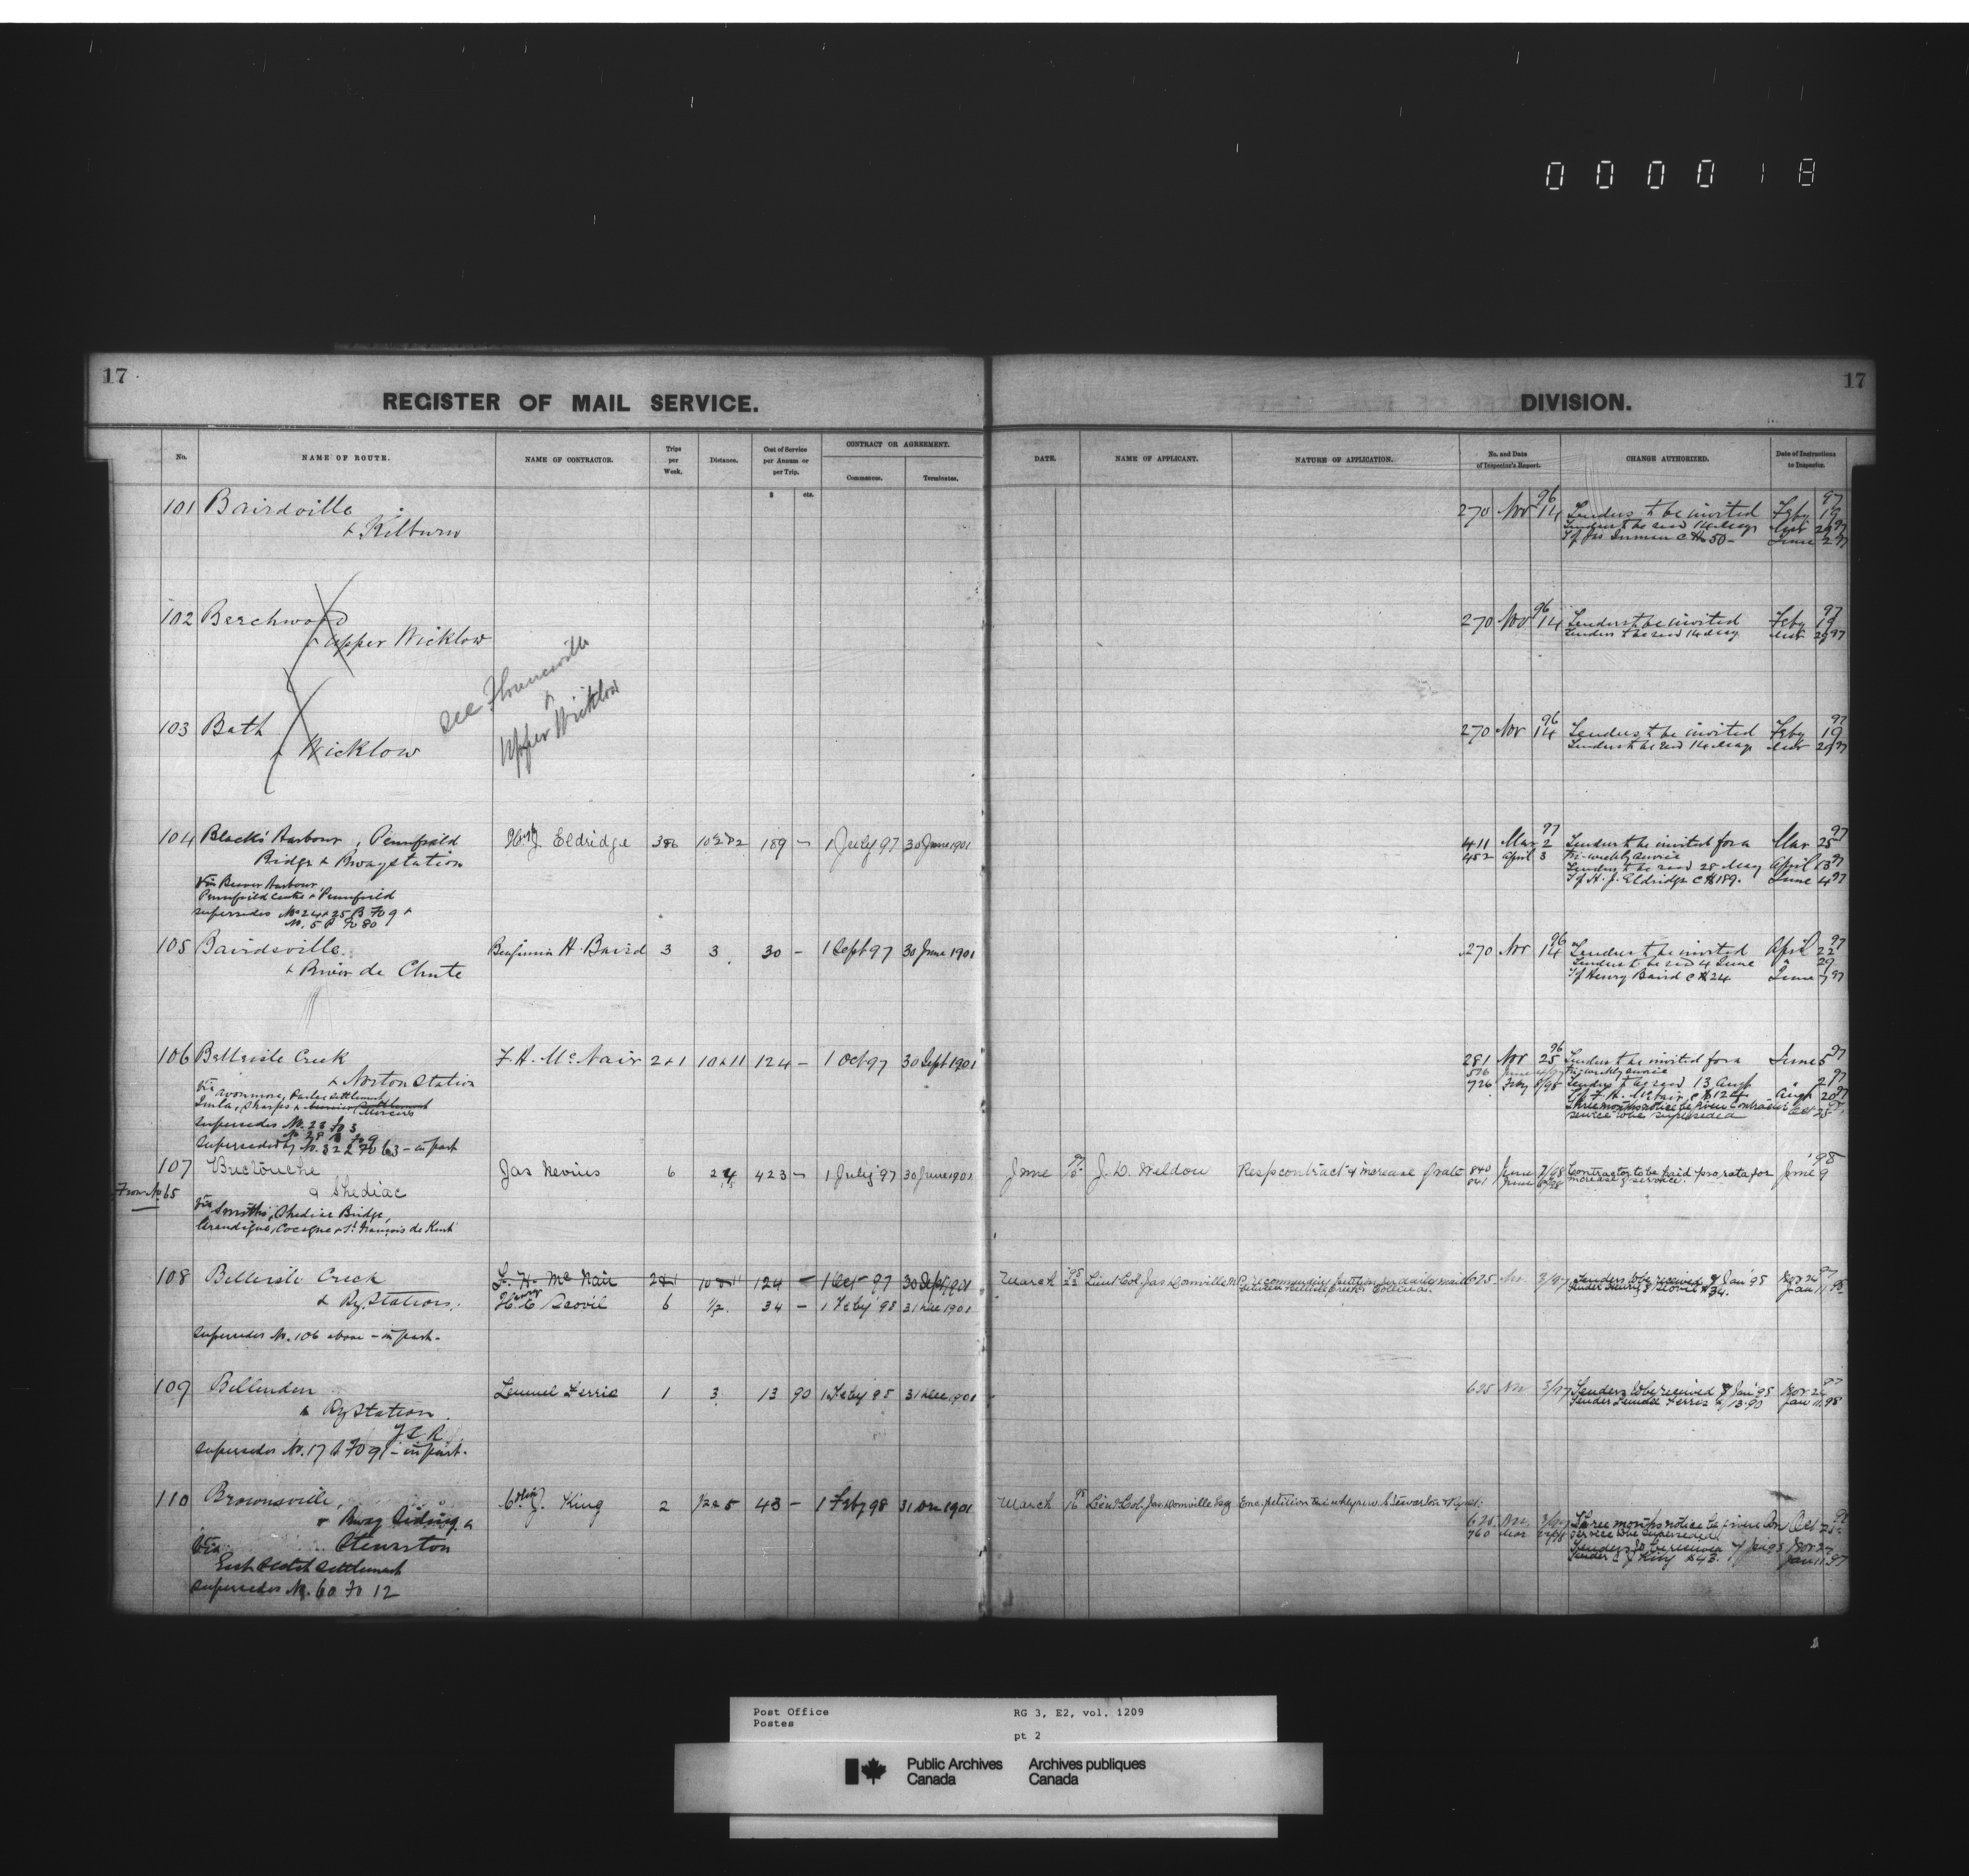 000018
17
REGISTER OF MAIL SERVICE.
DIVISION.
17
No.
NAME OF ROUTE.
NAME OF CONTRACTOR.
Trips per Week.
Distance.
Cost of Service per Annum or per Trip.
$ cts.
CONTRACT OR AGREEMENT.
Commences.
Terminates.
DATE.
NAME OF APPLICANT.
NATURE OF APPLICATION.
No. and Date of Inspector's Report.
CHANGE AUTHORIZED.
Date of Instructions to Inspector.
101 Bairdsville
& Kilburn
270 Nov 14 96 Tenders to be invited Feby 19 97
Tenders to be recd 14 May
T of Jas Inman C $50 - June 2 97
102 Beechwood
& Upper Wicklow
270 Nov 14 96 Tenders to be invited Feby 19 97
Tenders to be recd 14 May
see Florenceville
&
Upper Wicklow
103 Bath
& Wicklow
270 Nov 14 96 Tenders to be invited Feby 19 97
Tenders to be recd 14 May
104 Blacks' Harbour, Pennfield
Ridge & Rway station
via Beaver Harbour
Pennfield Centre & Pennfield
supersedes No 24 & 25 B Fo 9 &
No. 5 P Fo 80
H. J. Eldridge 189 - 1 July 97 30 June 1901
411 Mar 2 97 Tenders to be invited for a Mar 25 97
452 April 3 Tri-weekly service
Tenders to be recd 28 May April 13 97
T of H. J. Eldridge C $189. June 4 97
105 Bairdsville
& River de Chute
Benjamin H. Baird 3 3 30 - 1 Sept 97 30 June 1901
270 Nov 14 96 Tenders to be invited April 22 97
Tenders to be recd 4 June " 29
T of Henry Baird C $24 June 7 97
106 Belleisle Creek
& Norton Station
via Avonmore, Parlee Settlement
supersedes No. 28 Fo 3
Superseded by No. 322 Fo 63 - in part
F. H. McNair 2 & 1 10 & 11 124 - 1 Oct 97 30 Sept 1901
281 Nov 25 96 Tenders to be invited for a June 5 97
Tri-weekly service
726 Feby 8/98 Tenders to be recd 13 Augt
T of F. H. McNair C $124 Augt 20 97
Three months notice be given Contractor Oct 25
service to be superseded
107 Buctouche
& Shediac
From No 65
via Smith's, Shediac Bridge,
Grandigue, Cocagne & St. François de Kent
Jas Nevins 6 24 423 - 1 July 97 30 June 1901
June J. D. Weldon Resp contract & increase of rate
840 June 7/98 Contractor to be paid pro rata for June 9 '98
841 June increase of service.
108 Belleisle Creek
& Ry Station.
supersedes No. 106 above - in part -
F. H. McNair 2 & 1 10 & 11 124 - 1 Oct 97 30 Sept 1901
H. E. Scovil 6 1/2 34 - 1 Feby '98 31 Dec 1901
March 22 Lieut Col. Jas Domville M.P. recommending petition for daily mail
between Belleisle Creek & Collina.
625 Nov 3/97 Tenders to be received 7 Jan '98 Nov 24 97
Tender Henry E Scovil $34. Jan 11 98
109 Bellenden
& Ry Station.
I C R
supersedes No. 17 B Fo 9 - in part.
Lemuel Ferris 1 3 13 90 1 Feby 98 31 Dec 1901
625 Nov 3/97 Tenders to be received 7 Jan '98 Nov 24 97
Tender Lemuel Ferris $13.90 Jan 11 98
110 Brownsville,
& Rway Siding &
via Stewarton
East Scotch Settlement
supersedes No. 60 Fo 12
Colin J. King 2 43 - 1 Feby 98 31 Dec 1901
March 16 Lieut Col. Jas Domville Esq Enc. petition
625 Nov 3/97 Three months notice be given Con Oct 25
760 Mar service to be superseded
Tenders to be received 7 Jan 98 Nov 24
Tender C J King $43. Jan 11 97
Post Office
Postes
RG 3, E2, vol. 1209
pt 2
Public Archives
Canada
Archives publiques
Canada